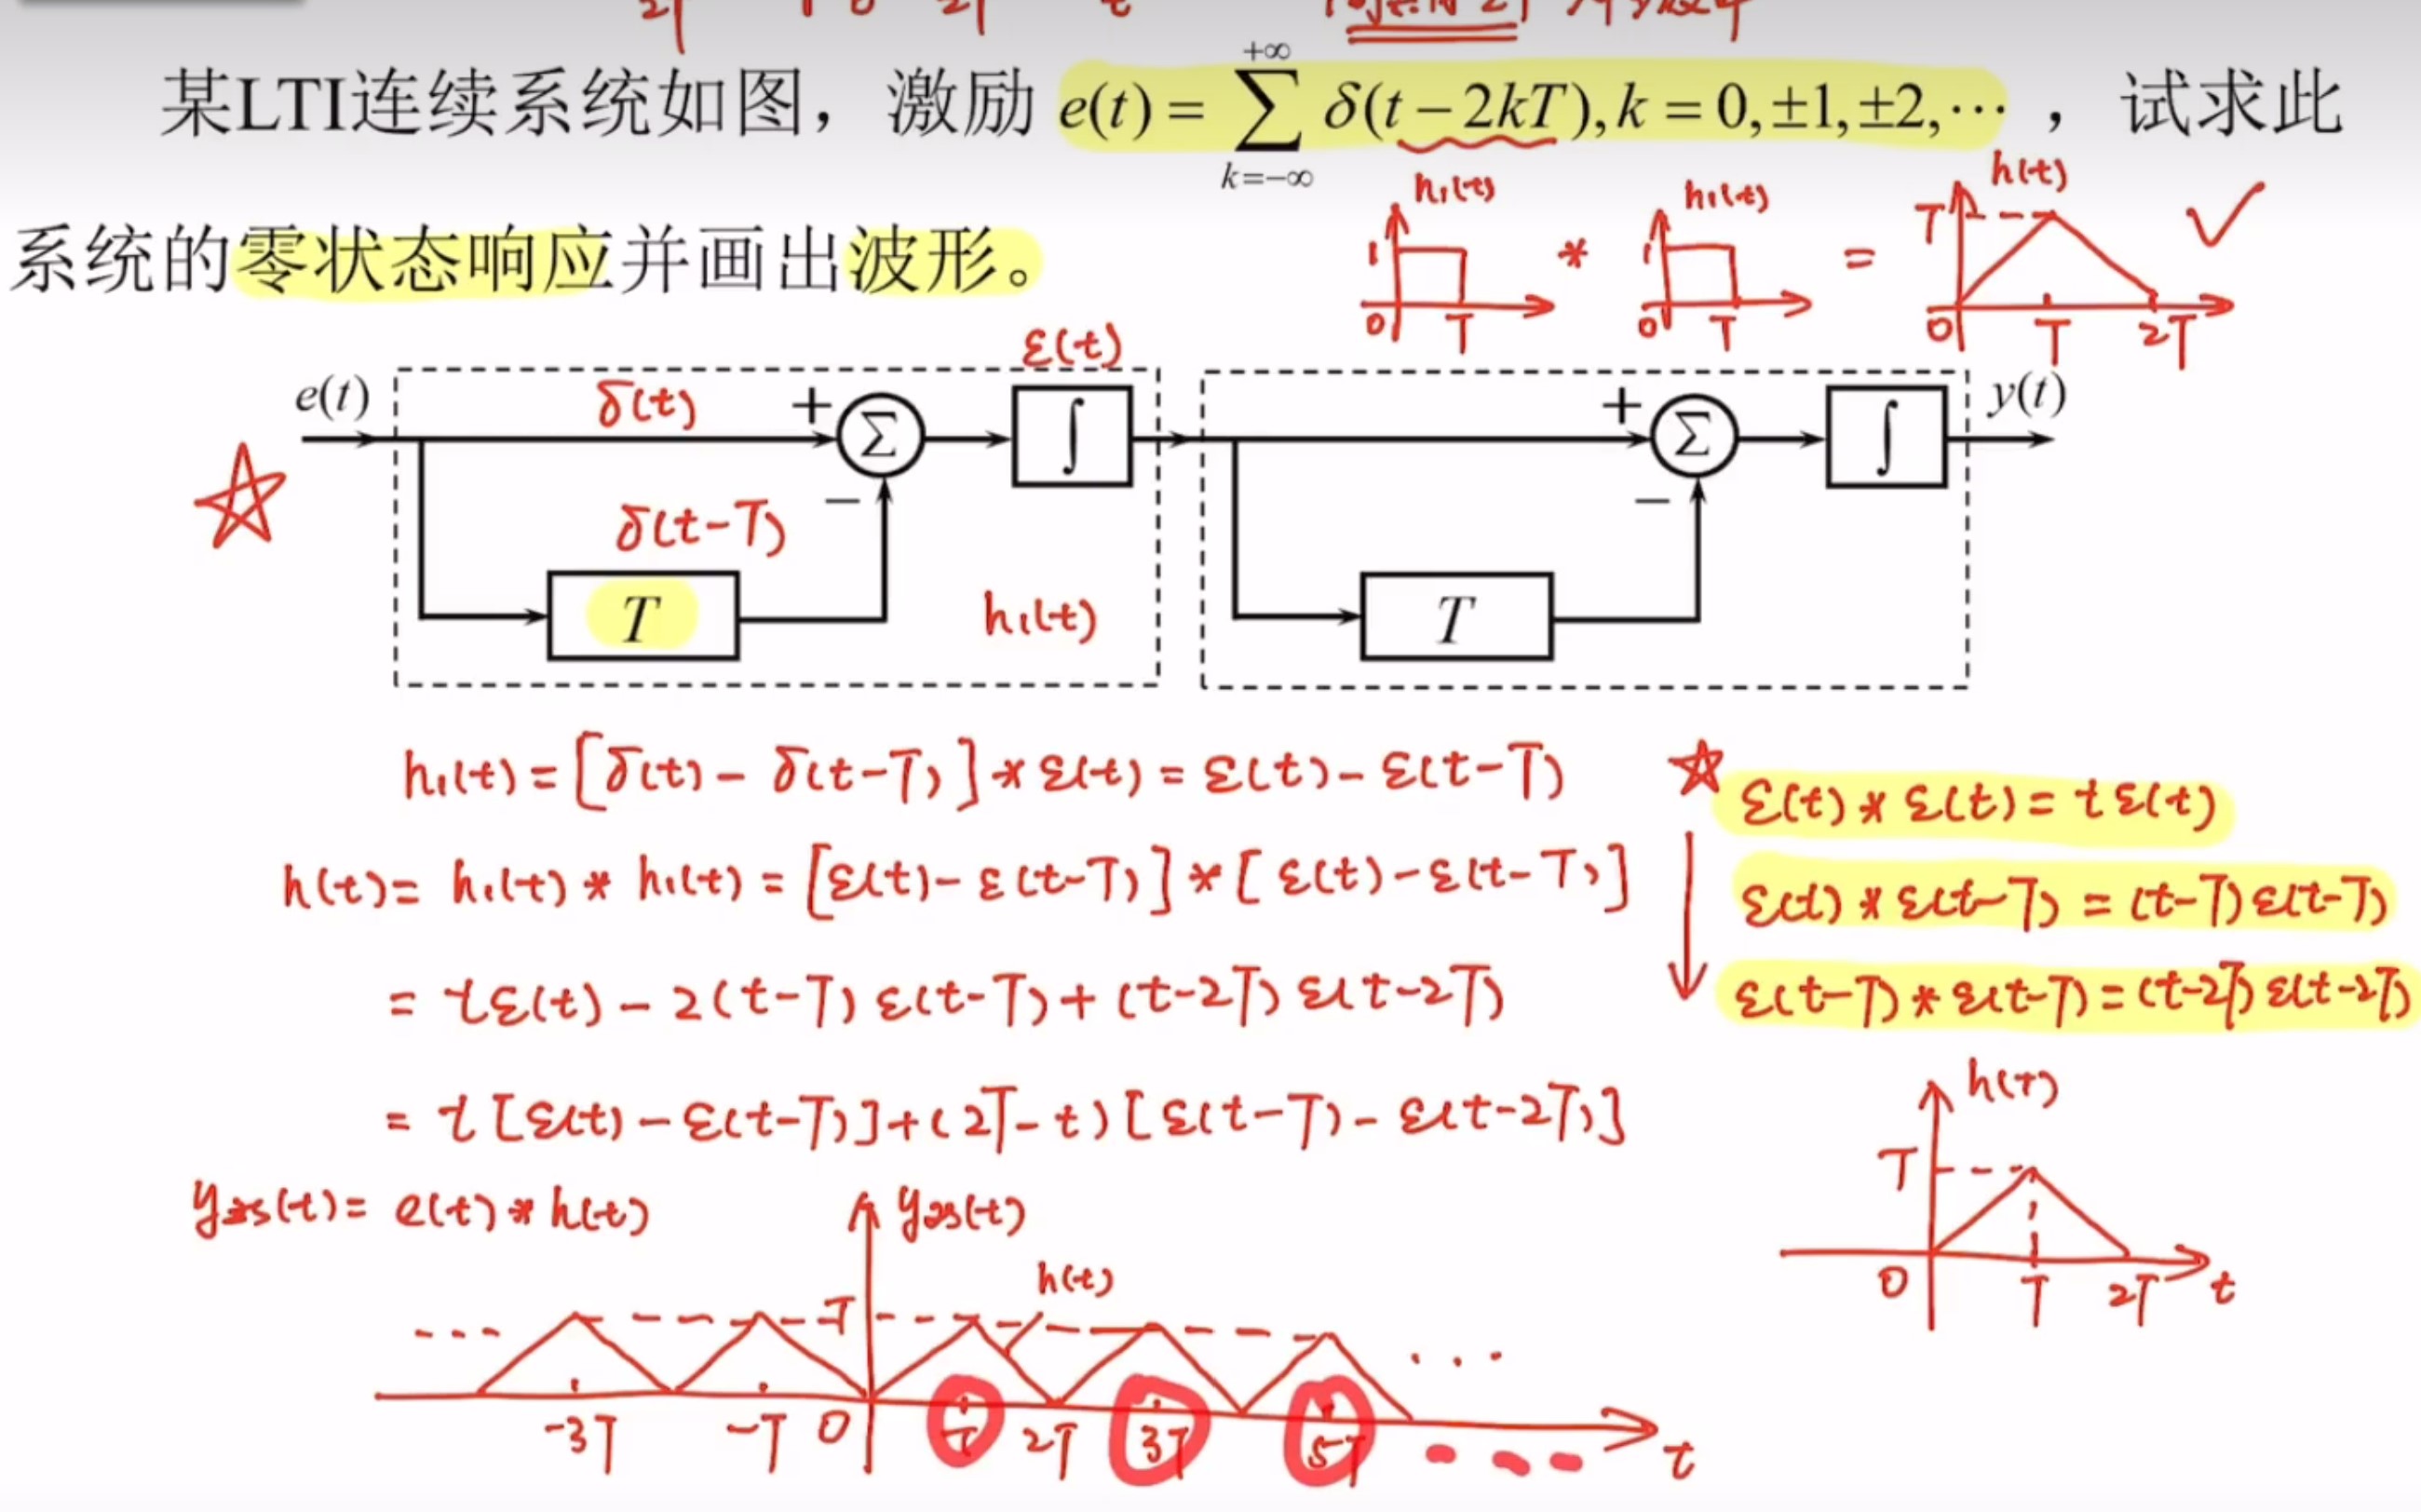 某LTI连续系统如图，激励 e(t) = ∑_{k=-∞}^{+∞} δ(t − 2kT), k = 0, ±1, ±2, ⋯ ，试求此
系统的零状态响应并画出波形。
h₁(t) * h₁(t) = h(t) ✓
1 0 T
1 0 T
T 0 T 2T
ε(t)
e(t) δ(t) + Σ ∫ + Σ ∫ y(t)
δ(t-T) − −
T h₁(t) T
h₁(t) = [δ(t) - δ(t-T)] * ε(t) = ε(t) - ε(t-T)
ε(t) * ε(t) = t ε(t)
h(t) = h₁(t) * h₁(t) = [ε(t) - ε(t-T)] * [ε(t) - ε(t-T)]
ε(t) * ε(t-T) = (t-T) ε(t-T)
= t ε(t) - 2(t-T) ε(t-T) + (t-2T) ε(t-2T)
ε(t-T) * ε(t-T) = (t-2T) ε(t-2T)
= t [ε(t) - ε(t-T)] + (2T-t) [ε(t-T) - ε(t-2T)]
h(t)
T
0 T 2T t
yzs(t) = e(t) * h(t)
yzs(t)
h(t)
T
-3T -T 0 T 2T 3T 5T t